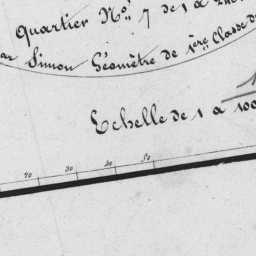 Quartier Nos. 7 de 1 à
par Simon Géomètre de 1ère Classe du
Echelle de 1 à 100
20 30 20 50